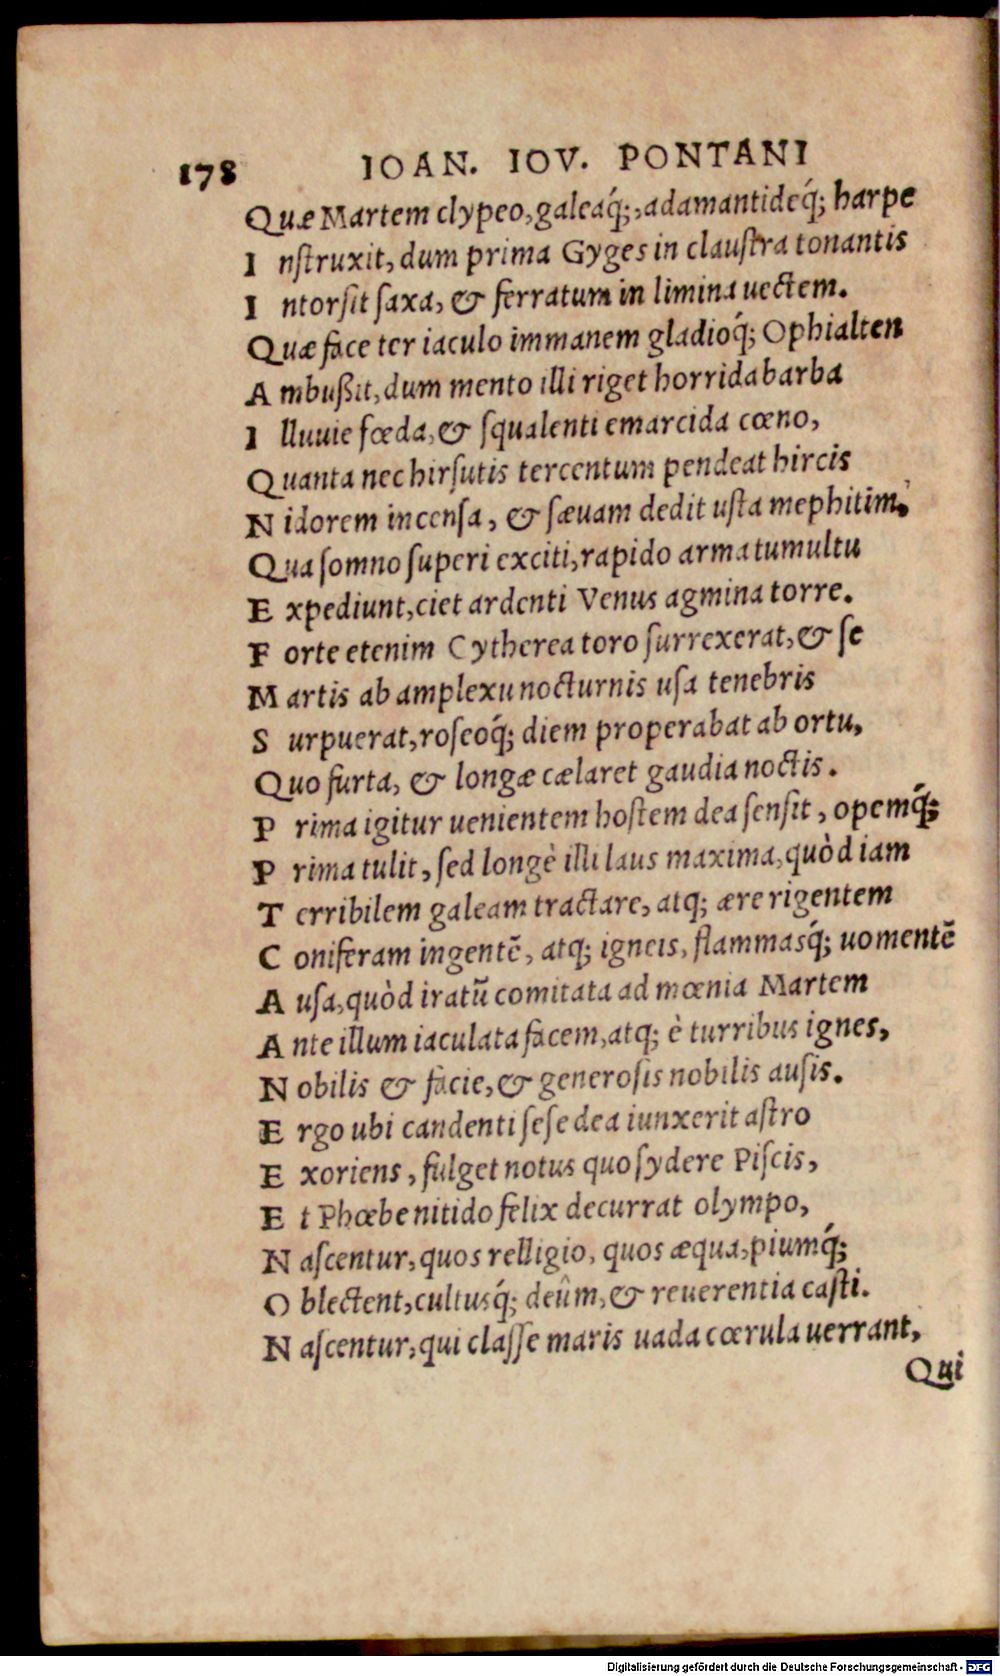 178 IOAN. IOV. PONTANI
Quæ Martem clypeo, galeaq́;, adamantideq́; harpe
I nſtruxit, dum prima Gyges in clauſtra tonantis
I ntorſit ſaxa, & ferratum in limina uectem.
Quæ face ter iaculo immanem gladioq́; Ophialten
A mbußit, dum mento illi riget horrida barba
I lluuie fœda, & ſqualenti emarcida cœno,
Quanta nec hirſutis tercentum pendeat hircis
N idorem incenſa, & ſæuam dedit uſta mephitim.
Qua ſomno ſuperi exciti, rapido arma tumultu
E xpediunt, ciet ardenti Venus agmina torre.
F orte etenim Cytherea toro ſurrexerat, & ſe
M artis ab amplexu nocturnis uſa tenebris
S urpuerat, roſeoq́; diem properabat ab ortu,
Quo furta, & longæ cælaret gaudia noctis.
P rima igitur uenientem hoſtem dea ſenſit, opemq́;
P rima tulit, ſed longè illi laus maxima, quòd iam
T erribilem galeam tractare, atq; ære rigentem
C oniferam ingentẽ, atq; igneis, flammasq́; uomentẽ
A uſa, quòd iratũ comitata ad mœnia Martem
A nte illum iaculata facem, atq; è turribus ignes,
N obilis & facie, & generoſis nobilis auſis.
E rgo ubi candenti ſeſe dea iunxerit aſtro
E xoriens, fulget notus quo ſydere Piſcis,
E t Phœbe nitido felix decurrat olympo,
N aſcentur, quos relligio, quos æqua, piumq́;
O blectent, cultusq́; deûm, & reuerentia caſti.
N aſcentur, qui claſſe maris uada cœrula uerrant,
Qui
Digitalisierung gefördert durch die Deutsche Forschungsgemeinschaft - DFG